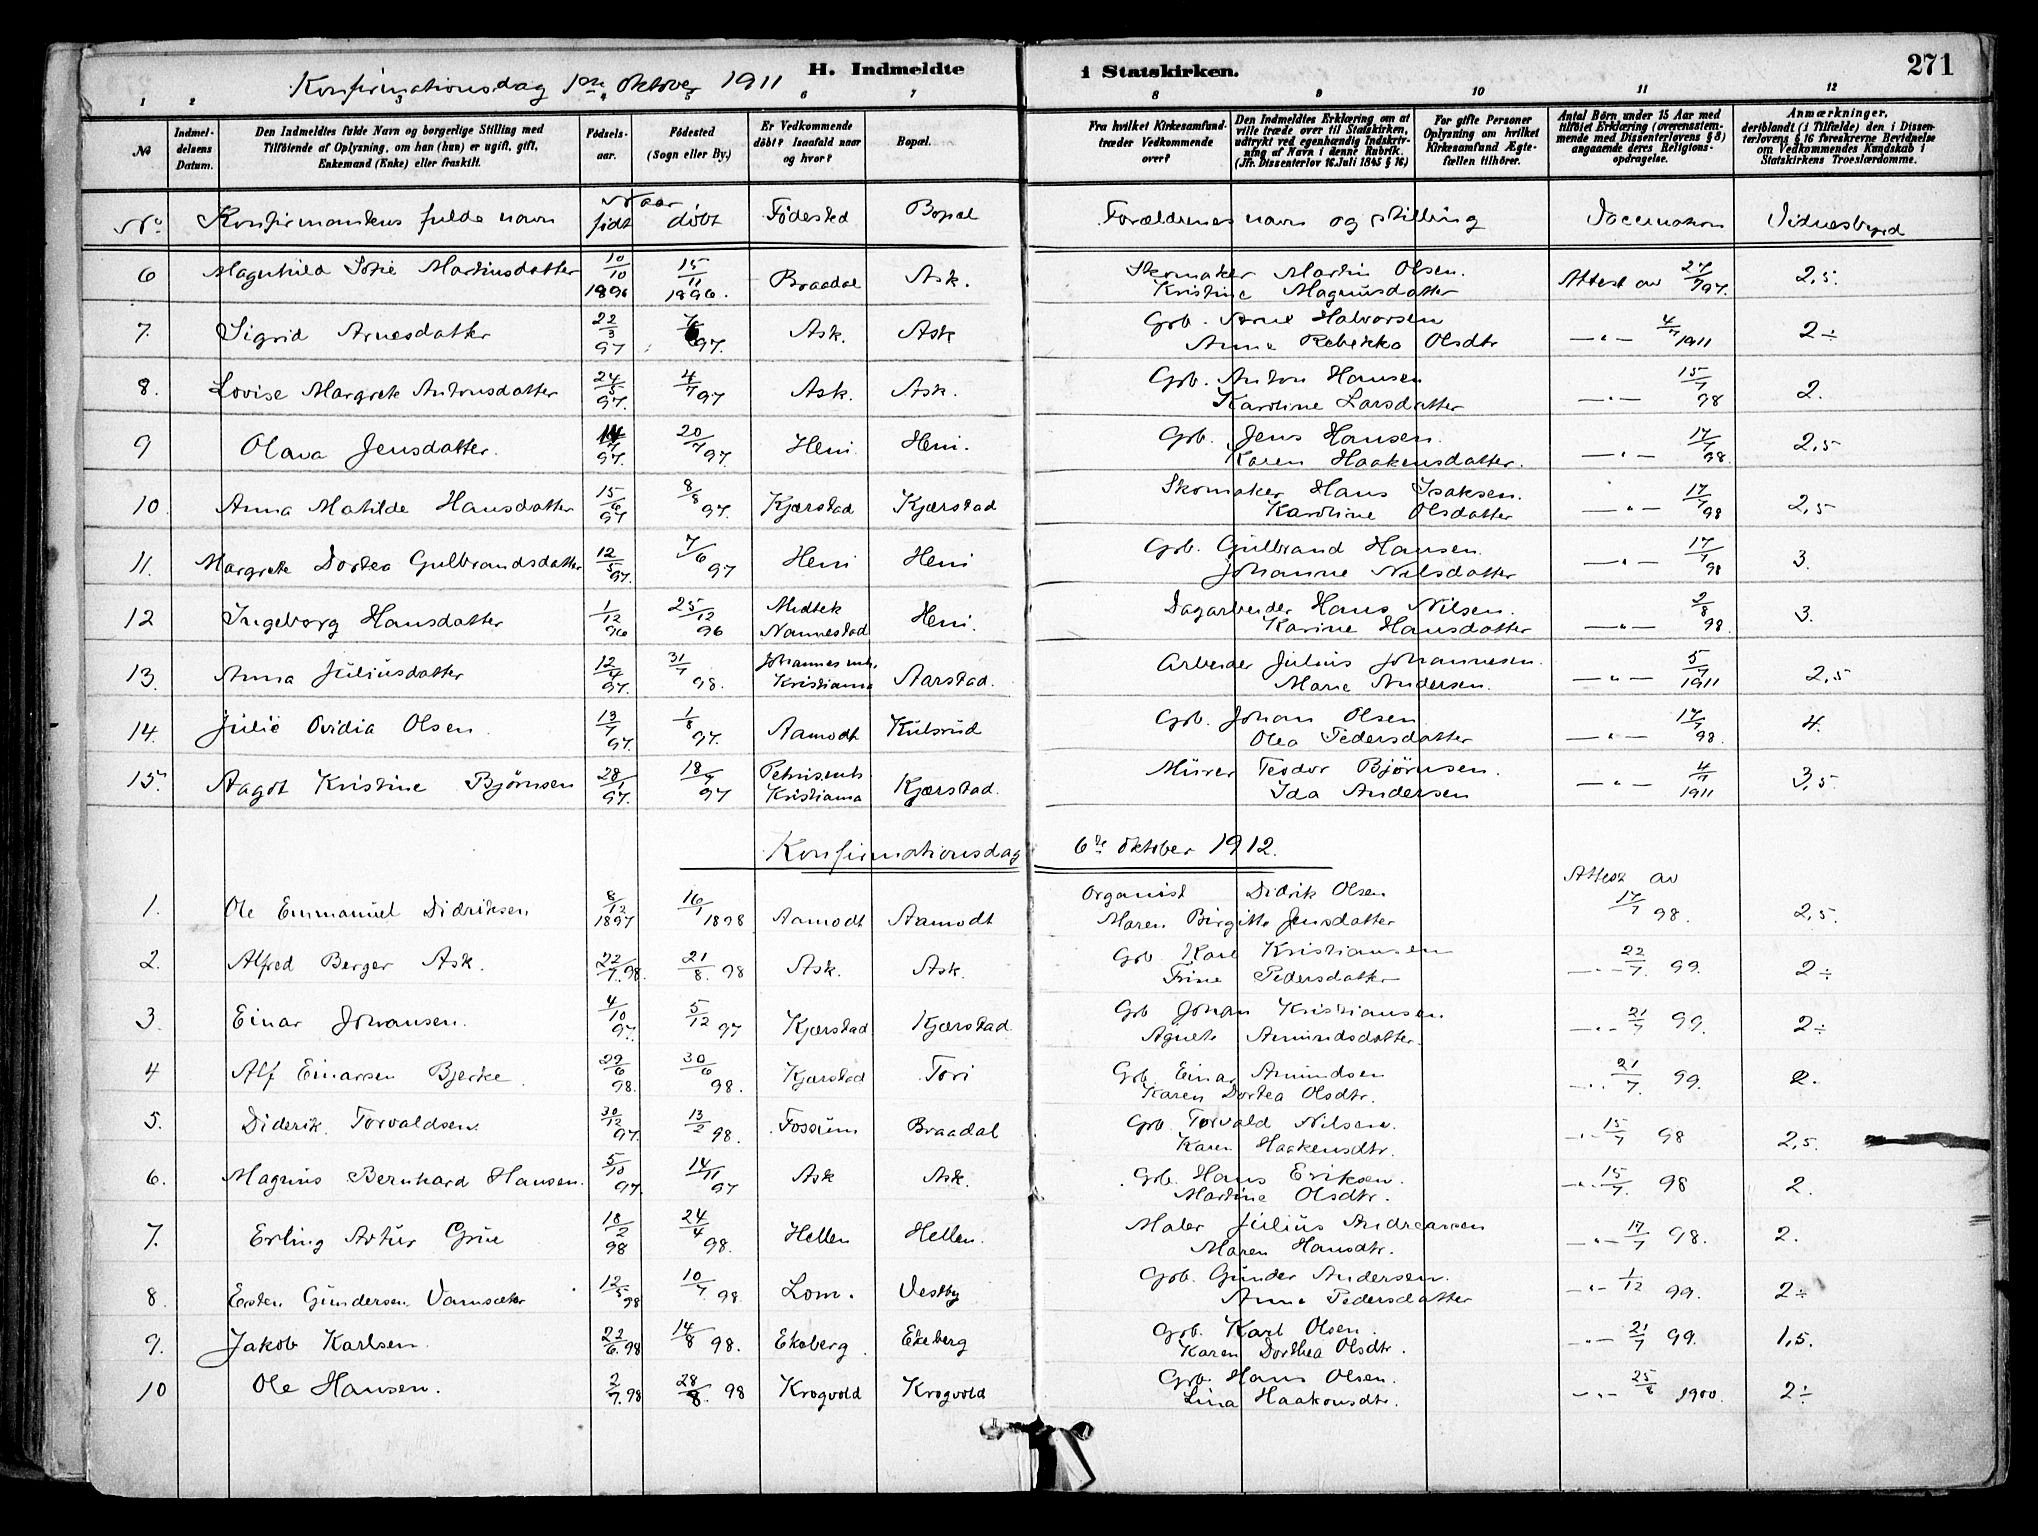 271
H. Indmeldte i Statskirken.
Konfirmationsdag 1ste oktober 1911
1 2 3 4 5 6 7 8 9 10 11 12
No
Indmeldelsens Datum.
Den Indmeldtes fulde Navn og borgerlige Stilling med Tilføiende af Oplysning, om han (hun) er ugift, gift, Enkemand (Enke) eller fraskilt.
Fødselsaar.
Fødested (Sogn eller By.)
Er Vedkommende døbt? Isaafald naar og hvor?
Bopæl.
Fra hvilket Kirkesamfund træder Vedkommende over?
Den Indmeldtes Erklæring om at ville træde over til Statskirken, udtrykt ved egenhændig Indskrivning af Navn i denne Rubrik. (Jfr. Dissenterlov 16 Juli 1845 § 16)
For gifte Personer Oplysning om hvilket Kirkesamfund Ægtefællen tilhører.
Antal Børn under 15 Aar med tilføiet Erklæring (overensstemmende med Dissenterlovens § 8) angaaende deres Religionsopdragelse.
Anmærkninger, deriblandt (i Tilfælde) den i Dissenterlovens § 16 foreskrevne Bevidnelse om Vedkommendes Kundskab i Statskirkens Troeslærdomme.
No. Konfirmantens fulde navn Naar født døbt Fødested Bopæl Forældrenes navn og stilling Vaccination Vidnesbyrd
6 Magnhild Sofie Martinsdatter 10/10 1896 15/11 1896. Braadal Ask. Skomaker Martin Olsen. Attest av 27/7 97. 2,5.
Kristine Magnusdatter
7. Sigrid Arnesdatter 22/3 97 97. Ask. Ask Grb. Arne Halvorsen —"— 4/7 1911 2÷
Anne Rebekka Olsdtr
8. Lovise Margrete Antonsdatter 24/5 97. 4/7 97 Ask. Ask. Grb. Anton Hansen —"— 15/7 98 2.
Karoline Larsdatter
9 Olava Jensdatter. 97. 20/7 97. Heni Heni. Grb. Jens Hansen. —"— 17/7 98. 2,5
Karen Haakensdatter.
10. Anna Matilde Hansdatter 15/6 97 8/8 97. Kjærstad Kjærstad Skomaker Hans Isaksen. —"— 17/7 98 2,5
Karoline Olsdatter
11. Margrete Dortea Gulbrandsdatter 12/5 97. 7/6 97 Heni Heni Grb. Gulbrand Hansen. —"— 17/7 98 3.
Johanne Nilsdatter
12 Ingeborg Hansdatter 1/12 96 25/12 96 Nannestad Heni. Dagarbeider Hans Nilsen. —"— 2/8 98. 3.
Karine Hansdatter
13. Anna Juliusdatter 12/4 97. 31/7 98. Johannes mh. Kristiania Aarstad. Arbeider Julius Johannesen. —"— 5/7 1911 2,5
Marie Andersen.
14. Julie Ovidia Olsen. 13/7 97. 1/8 97. Aamodt Kulsrud Grb. Johan Olsen —"— 17/7 98. 4.
Olea Pedersdatter
15. Aagot Kristine Bjørnsen 28/1 97. 18/7 97 Petrus mh Kristiania Kjærstad. Murer Teodor Bjørnsen. —"— 4/7 1911 3,5.
Ida Andersen
Konfirmationsdag 6te oktober 1912.
1. Ole Emmanuel Didriksen 8/12 1897 16/1 1898 Aamodt Aamodt Organist Didrik Olsen Attest av 17/7 98. 2,5.
Maren Birgitte Jensdatter
2. Alfred Berger Ask. 22/7. 98. 21/8. 98 Ask. Ask. Grb. Karl Kristiansen —"— 22/7. 99. 2÷
Trine Pedersdatter
3. Einar Johansen. 4/10 97. 5/12 97 Kjærstad Kjærstad Grb Johan Kristiansen. —"— 21/7 99. 2÷
Agnete Amundsdatter.
4 Alf Einarsen Bjerke. 29/6 98. 30/6 98. Kjærstad Tori Grb. Einar Amundsen —"— 21/7 99. 2.
Karen Dortea Olsdtr.
5. Diderik Torvaldsen. 30/12 97. 13/2 98. Fossum Braadal Grb. Torvald Nilsen. —"— 15/7 98 2,5.
Karen Haakensdtr.
6. Magnus Bernhard Hansen. 5/10 97. 14/11 97 Ask Ask. Grb. Hans Eriksen. —"— 15/7. 98 2.
Martine Olsdtr.
7. Erling Artur Grue 18/2 98 24/4 98. Hellen Hellen. Maler Julius Andreassen —"— 17/7 98. 2.
Maren Hansdtr.
8. Esten Gundersen Vamsæter 12/5 98 10/7 98 Lom. Vestby Grb. Gunder Andersen. —"— 1/12 99. 2÷
Anne Pedersdatter
9. Jakob Karlsen. 22/6. 98 14/8 98. Ekeberg Ekeberg Grb. Karl Olsen. —"— 21/7 99. 1,5.
Karen Dorthea Olsdtr.
10 Ole Hansen. 2/7. 98 28/8. 98 Krogvold Krogvold Grb. Hans Olsen. —"— 25/8 1900. 2÷
Lina Haakonsdtr.